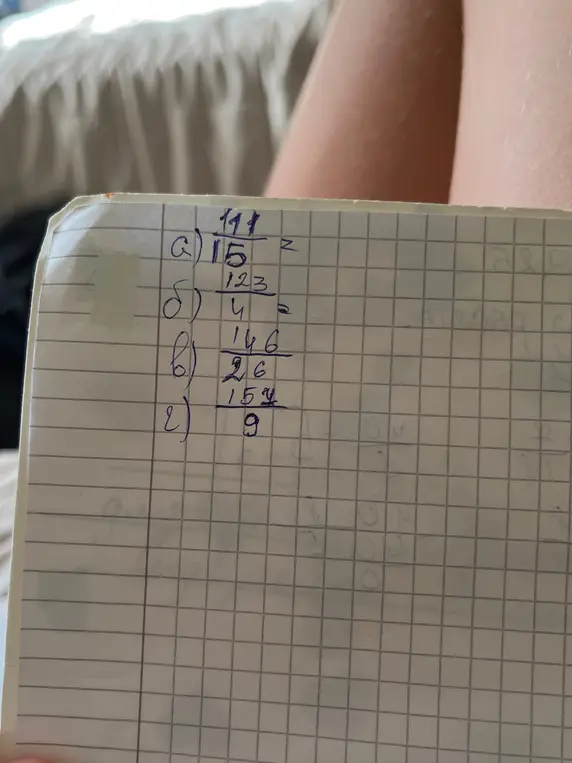 а) 111/15 =
б) 123/4 =
в) 146/26
г) 157/9